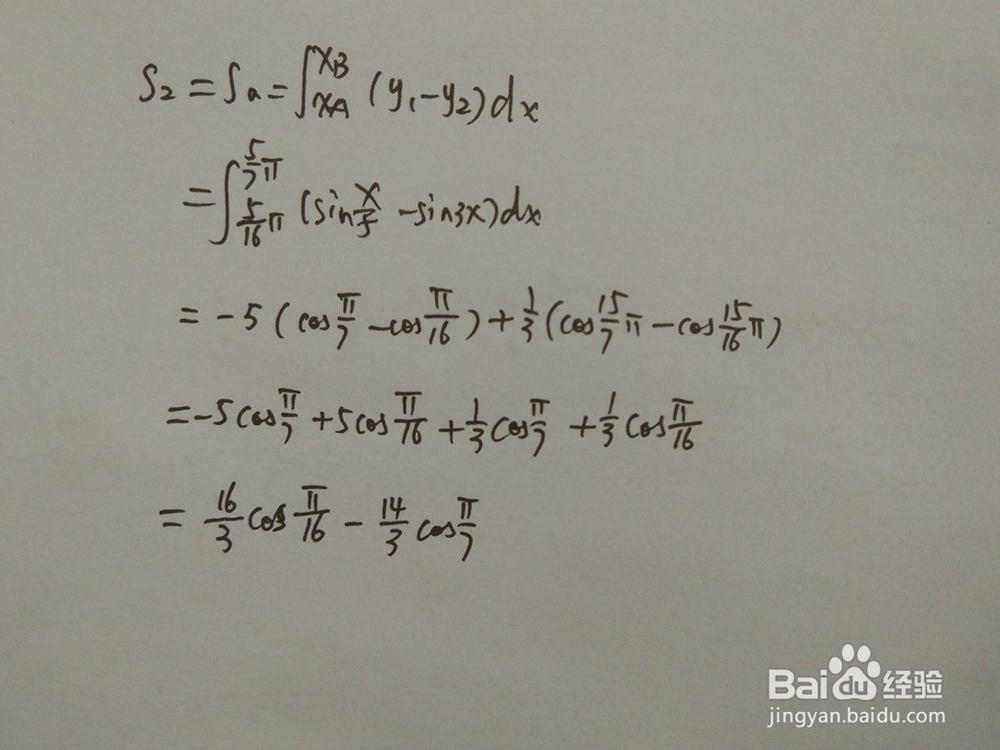 S₂ = Sₐ = ∫_{xA}^{xB} (y₁-y₂)dx
= ∫_{5/16 π}^{5/7 π} (sin x/5 - sin3x)dx
= -5 (cos π/7 - cos π/16) + 1/3 (cos 15/7 π - cos 15/16 π)
= -5cos π/7 + 5cos π/16 + 1/3 cos π/7 + 1/3 cos π/16
= 16/3 cos π/16 - 14/3 cos π/7
Baidu 经验
jingyan.baidu.com